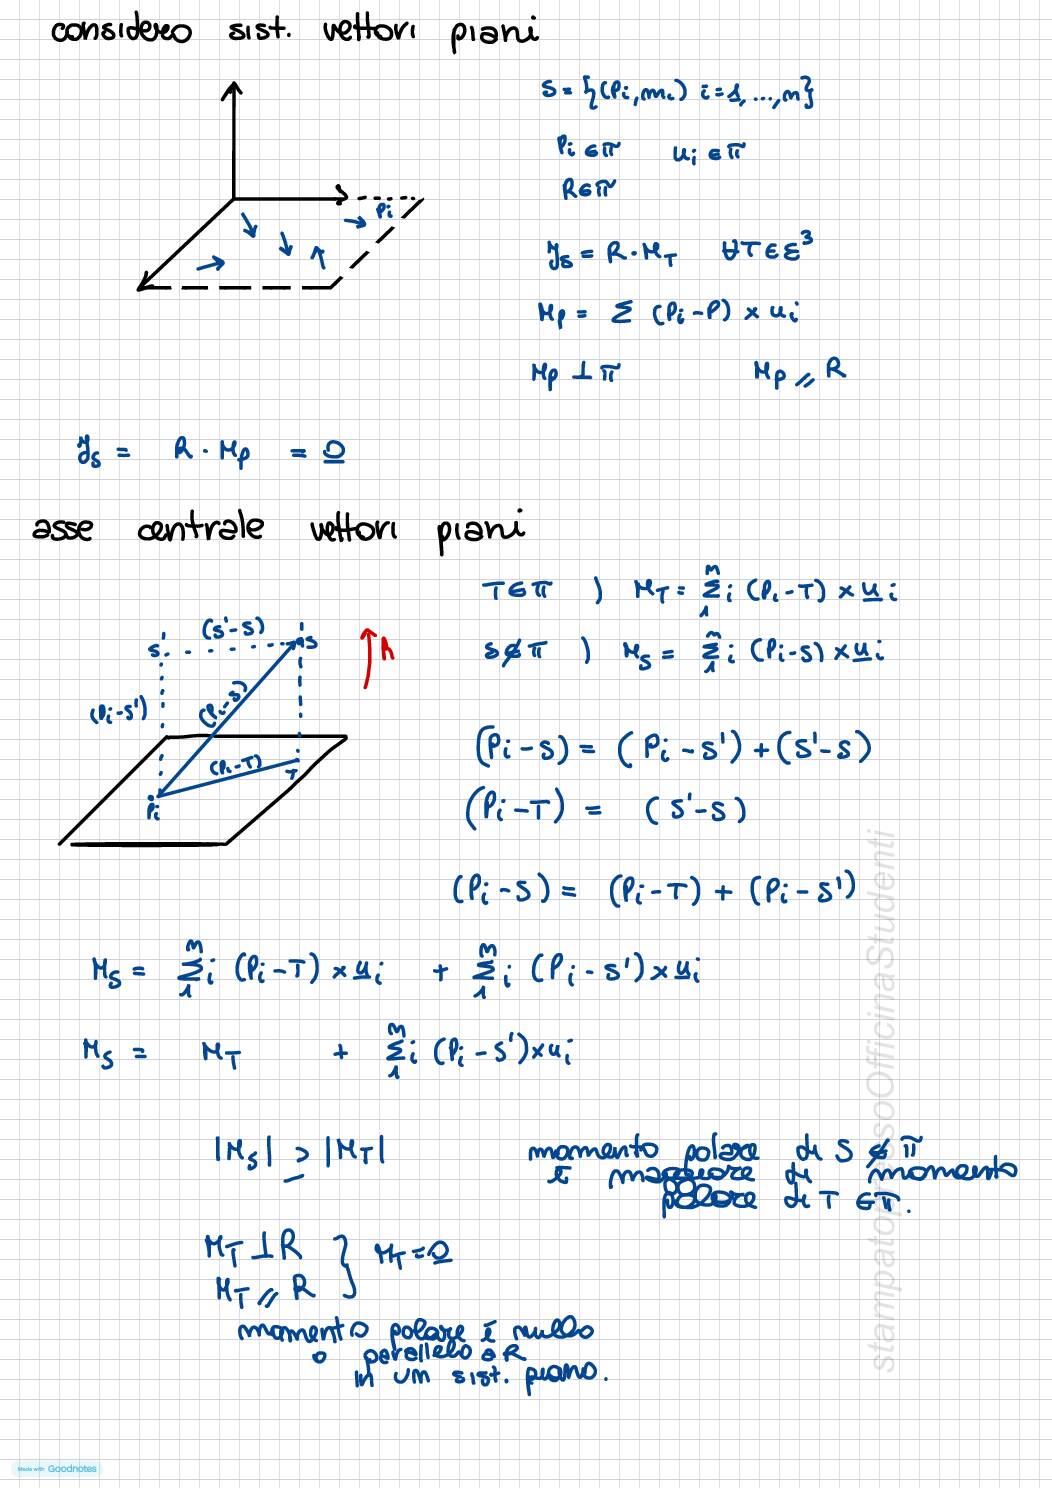 considero sist. vettori piani
S = {(Pi, mi) i=1, ..., n}
Pi ∈ π ui ∈ π
R ∈ π
Pi
Ys = R · MT ∀T ∈ ε³
Mp = Σ (Pi - P) × ui
Mp ⊥ π Mp // R
Ys = R · Mp = 0
asse centrale vettori piani
T ∈ π ) MT = Σ₁ⁿ i (Pi - T) × ui
S ∉ π ) Ms = Σ₁ⁿ i (Pi - S) × ui
(S' - S)
S' S
h
(Pi - S')
(Pi - S)
(Pi - T)
T
Pi
(Pi - S) = (Pi - S') + (S' - S)
(Pi - T) = (S' - S)
(Pi - S) = (Pi - T) + (Pi - S')
Ms = Σ₁ⁿ i (Pi - T) × ui + Σ₁ⁿ i (Pi - S') × ui
Ms = MT + Σ₁ⁿ i (Pi - S') × ui
|Ms| ≥ |MT|
momento polare di S ∉ π
è maggiore di momento
polare di T ∈ π.
MT ⊥ R
MT // R } MT = 0
momento polare è nullo
o parallelo a R
in un sist. piano.
stampatopressoOfficinaStudenti
Made with Goodnotes